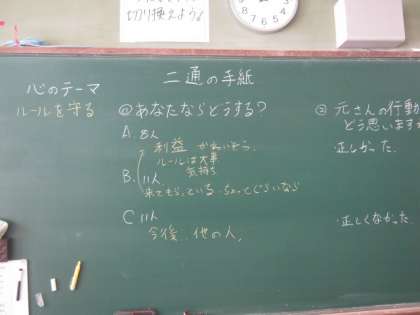 切り換えよう
二通の手紙
心のテーマ
ルールを守る
①あなたならどうする?
A. 8人
利益 かわいそう。
ルールは大事
気持ち
B. 11人
来てもらっている ちょっとぐらいなら
C 11人
今後 他の人。
② 元さんの行動
どう思います
・正しかった。
・正しくなかった。